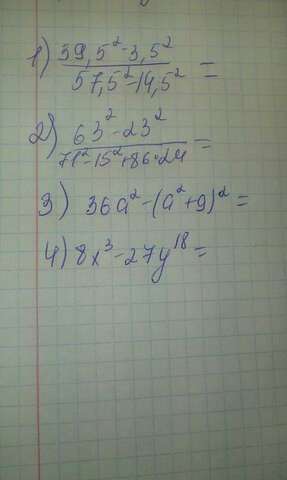 1) 39,5² - 3,5²
57,5² - 14,5² =
2) 63² - 23²
71² - 15² + 86·24 =
3) 36a² - (a² + 9)² =
4) 8x³ - 27y¹⁸ =